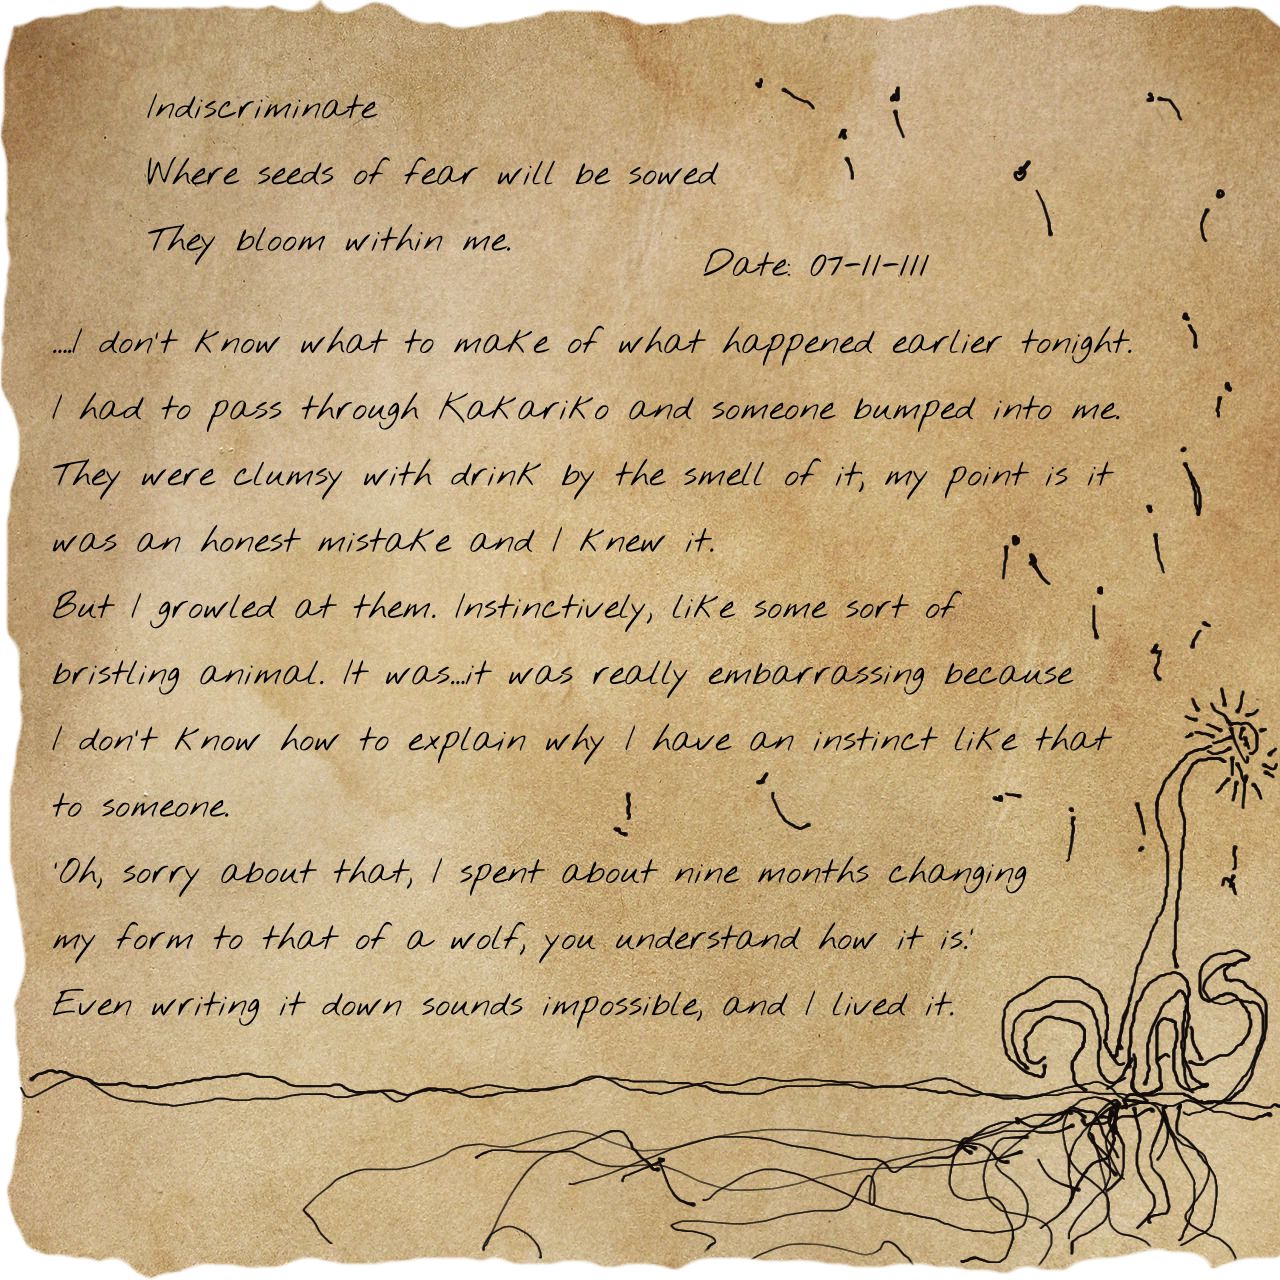 Indiscriminate
Where seeds of fear will be sowed
They bloom within me.
Date: 07-11-111
....I don't know what to make of what happened earlier tonight.
I had to pass through Kakariko and someone bumped into me.
They were clumsy with drink by the smell of it, my point is it
was an honest mistake and I knew it.
But I growled at them. Instinctively, like some sort of
bristling animal. It was...it was really embarrassing because
I don't know how to explain why I have an instinct like that
to someone.
'Oh, sorry about that, I spent about nine months changing
my form to that of a wolf, you understand how it is.'
Even writing it down sounds impossible, and I lived it.